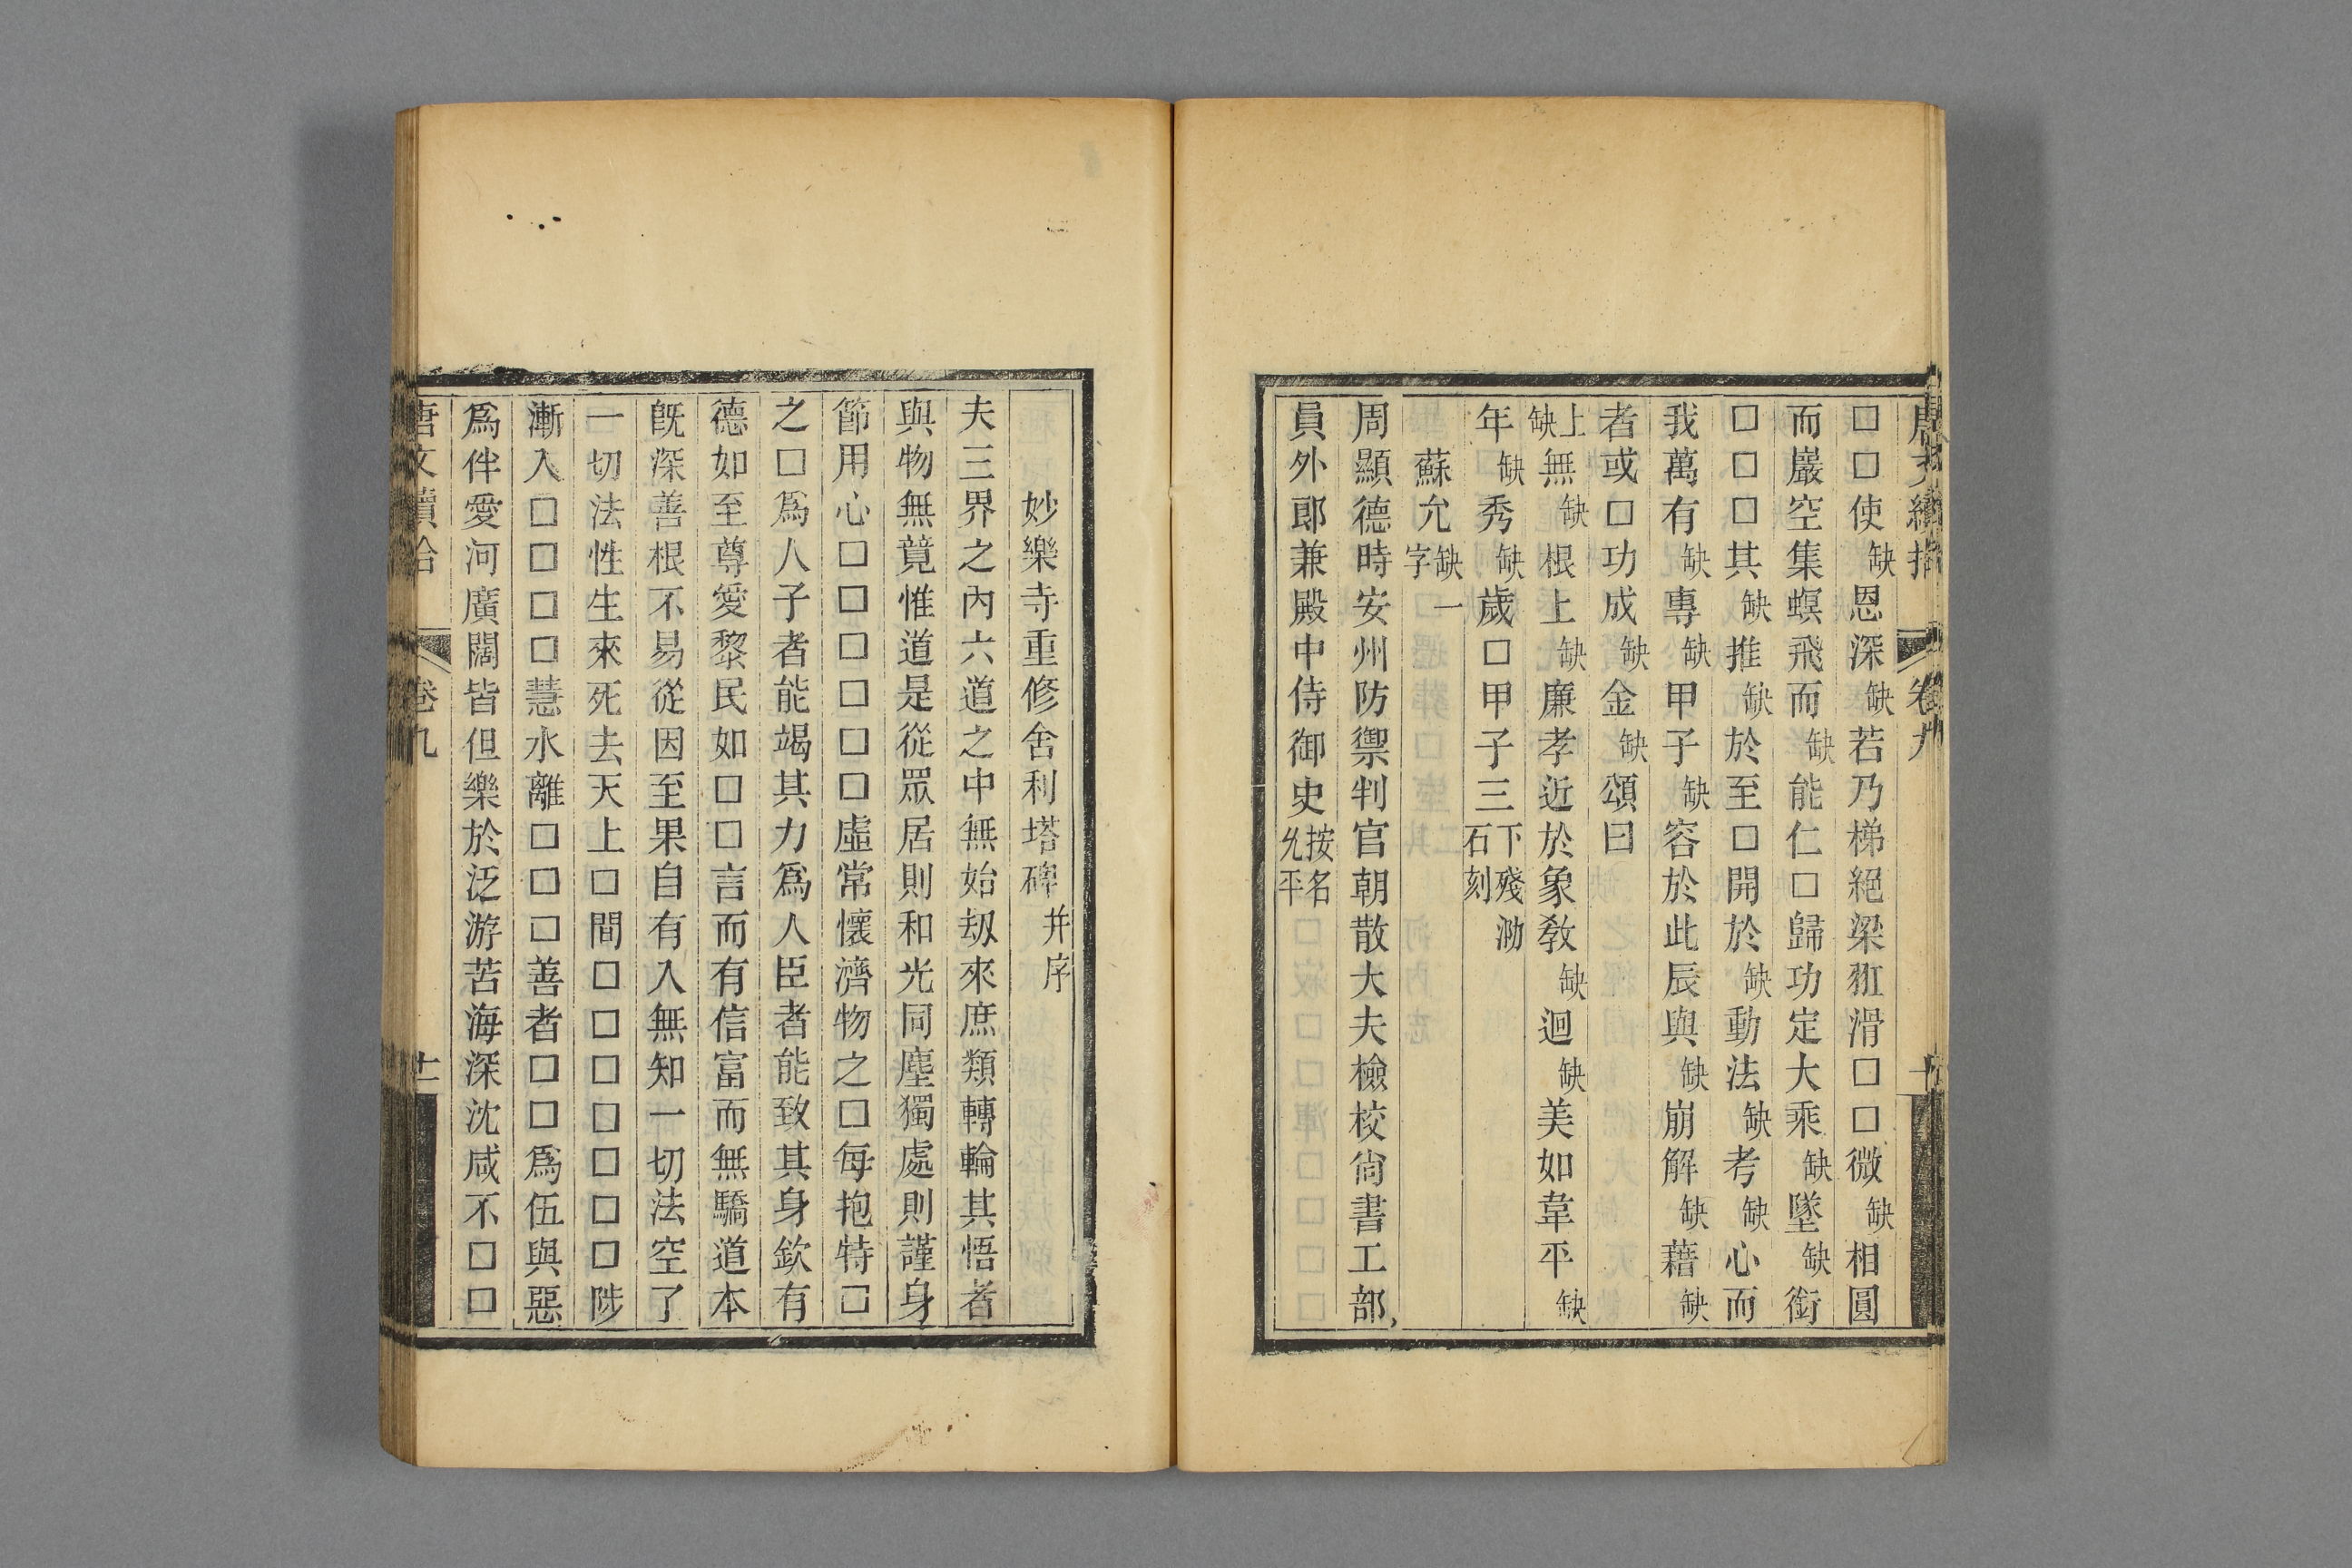 唐文續拾 卷九 十
□□使缺恩深缺若乃梯絕梁㹳滑□□微缺相圓
而巖空集螟飛而缺能仁□歸功定大乘缺墜缺銜
□□□其缺推缺於至□開於缺動法缺考缺心而
我萬有缺專缺甲子缺容於此辰與缺崩解缺藉缺
者或□功成缺金缺頌曰
上缺無缺根上缺廉孝近於象敎缺迴缺美如韋平缺
年缺秀缺歲□甲子三下殘泐石刻
蘇允缺一字
周顯德時安州防禦判官朝散大夫檢校尙書工部
員外郎兼殿中侍御史按名允平
妙樂寺重修舍利塔碑并序
夫三界之內六道之中無始刼來庶類轉輪其悟者
與物無竟惟道是從眾居則和光同塵獨處則謹身
節用心□□□□□□虛常懷濟物之□每抱特□
之□爲人子者能竭其力爲人臣者能致其身欽有
德如至尊愛黎民如□□言而有信富而無驕道本
旣深善根不易從因至果自有入無知一切法空了
一切法性生來死去天上□間□□□□□□□陟
漸入□□□□慧水離□□□善者□□爲伍與惡
爲伴愛河廣闊皆但樂於泛游苦海深沈咸不□□
唐文續拾 卷九 十一